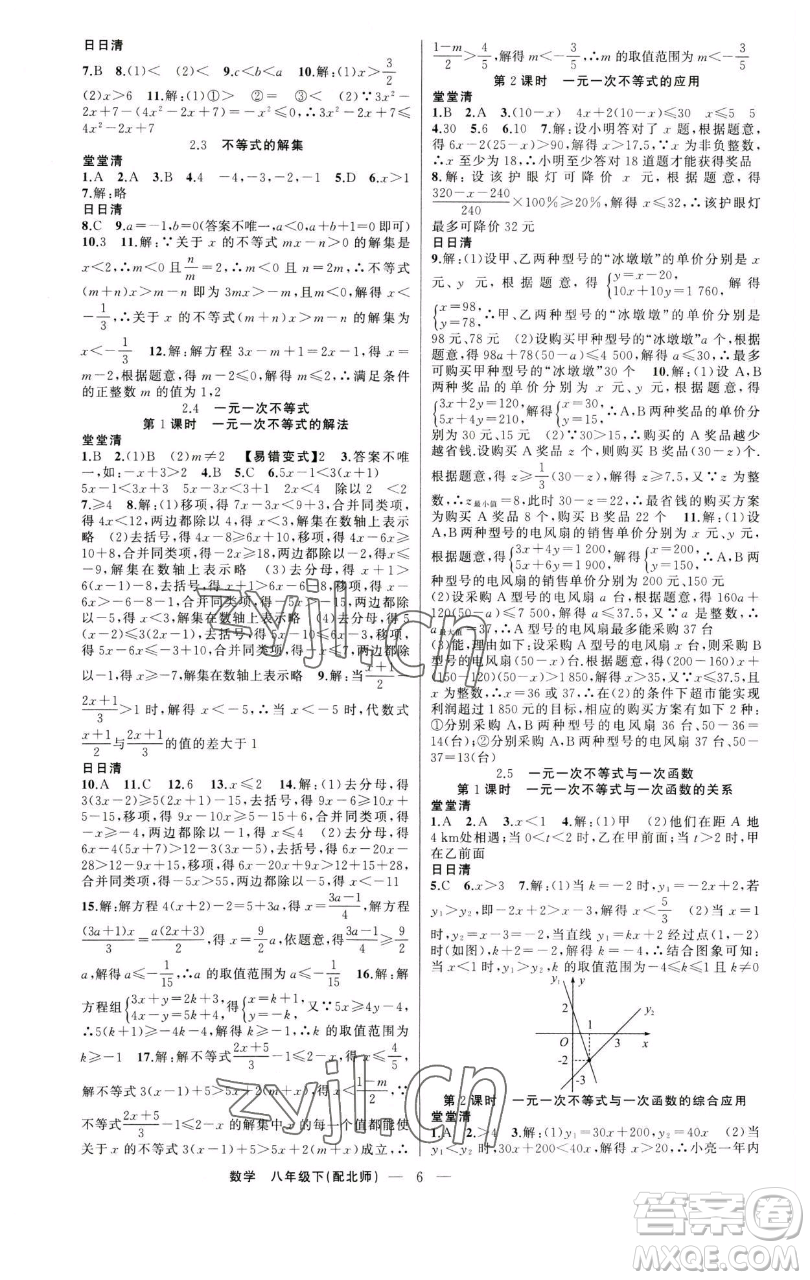 日日清
7.B 8.(1)< (2)< 9.c<b<a 10.解:(1)x>3/2
(2)x>6 11.解:(1)①> ②= ③< (2)∵3x²-
2x+7-(4x²-2x+7)=-x²≤0,∴3x²-2x+7≤
4x²-2x+7
2.3 不等式的解集
堂堂清
1.A 2.A 3.B 4.4 -4,-3,-2,-1 5.D 6.x>1
7.解:略
日日清
8.C 9.a=-1,b=0(答案不唯一,a<0,a+b+1=0即可)
10.3 11.解:∵关于x的不等式mx-n>0的解集为
x<1/3,∴m<0且n/m=1/3,∴m=3n,n<0,∴不等式
(m+n)x>m-n即为3nx+nx>3n-n,解得x<
1/2
x<
12.解:解方程3x-m+1=2x-1,得x=
m-2,根据题意,得m-2≤0,解得m≤2,∴满足条件
的正整数m的值为1,2
2.4 一元一次不等式
第1课时 一元一次不等式的解法
堂堂清
1.B 2.(1)B (2)m≠2 【易错变式】2 3.答案不唯
一,如:-x+3>2 4.B 5.C 6.5x-1<3(x+1)
5x-1<3x+3 5x-3x<3+1 2x<4 除以2 <2
7.≥4 8.解:(1)移项,得7x-3x<9+3,合并同类项,
得4x<12,两边都除以4,得x<3,解集在数轴上表示
略 (2)去括号,得4x-8≥6x+10,移项,得4x-6x≥10+8,
合并同类项,得-2x≥18,两边都除以-2,得x≤
-9,解集在数轴上表示略 (3)去分母,得3x+1>
6(x-1)-8,去括号,得
x≥-6-8-1,合并同类项,得
以-5,
得x≥-7,解集在数轴上表示略 9.解:当(x+1)/2-
(2x+1)/3>1时,解得x<-5,∴当x<-5时,代数式
(x+1)/2与(2x+1)/3的值的差大于1
日日清
10.A 11.C 12.6 13.x≤2 14.解:(1)去分母,得
3(3x-2)≥5(2x+1)-15,去括号,得9x-6≥10x+
5-15,移项,得9x-10x≥5-15+6,合并同类项,得
-x≥-4,解得x≤4 (2)去分母,得
6x-4(5x+7)≥2x-12,去括号,得6x-20x-
28>2x-12,移项,得6x-20x-2x≥-12+28,
合并同类项,得-16x≥16,两边都除以-16,得x≤-1
15.解:解方程4(x+2)-2=5+3a,得x=(3a-1)/4,解方程
(3a+1)x/3=a(2x+3)/2,得x=9/2a,依题意,得(3a-1)/4≥9/2
a,解得a≤-1/15,∴a的取值范围为a≤-1/15 16.解:解
方程组{3x+y=2+3k,4x-y=5+4k,得{x=k+1,y=-1,又∵5x≥4y-4,
∴5(k+1)≥-4-4,
17.解:解不等式(2x+5)/3-1≤2-x,得x≤4/5,
解不等式3(x-1)+5>5x+2(m+x),得x<(1-m)/2,∵
不等式(2x+5)/3-1≤2-x的解集中x的每一个值都能使
关于x的不等式3(x-1)+5>5x+2(m+x)成立,∴
(1-m)/2>4/5,解得m<-3/5,∴m的取值范围为m<-3/5
第2课时 一元一次不等式的应用
堂堂清
1.B 2.A 3.(10-x) 4x+2(10-x)≤30 x≤5 5
4.30 5.6 6.10 7.解:设小明答对了x题,根据题意,
得6x-2(25-x)>90,解得x>17.5,∵x为非负整数,
∴x至少为18,∴小明至少答对18道题才能获得奖品
8.解:设该护眼灯可降价x元,根据题意,得
(320-x-240)/240×100%≥20%,解得x≤32,∴该护眼灯
最多可降价32元
日日清
9.解:(1)设甲、乙两种型号的“冰墩墩”的单价分别是x
元、y元,根据题意,得{y=x-20,10x+10y=1 760,解得
{x=98,y=78,∴甲、乙两种型号的“冰墩墩”的单价分别是
98元、78元 (2)设购买甲种型号的“冰墩墩”a个,根据
题意,得98a+78(50-a)≤
可购买甲种型号的“冰墩墩” 10.解:(1)设A,B
两种奖品的单价分别为x元、y元,根据题意,得
{3x+2y=120,5x+4y=210,解得{x=30,y=15,∴A,B两种奖品的单价分
别为30元、15元 (2)购买的A奖品越少
越省钱.设购买A奖品z个,则购买B奖品(30-z)个,
根据题意,得z≥1/3(30-z),解得z≥7.5,又∵z为整
数,∴z最小值=8,此时30-z=22,∴最省钱的购买方案
为购买A奖品8个,购买B奖品22个 11.解:(1)设
A,B两种型号的电风扇的销售单价分别为x元、y元,
根据题意,得{3x+4y=1 200,5x+6y=1 900,解得{x=200,y=150,∴A,B两
种型号的电风扇的销售单价分别为200元,150元
(2)设采购A种型号的电风扇a台,根据题意,得160a+
120(50-a)≤7 500,解得a≤37.5,又∵a是整数,
∴a最大值=37,∴A型号的电风扇最多能采购37台
(3)能,理由:设采购A型号的电风扇x台,则采购B型
号的电风扇(50-x)台,根据题意,得(200-160)x+
(150-120)(50-x)>1 850,解得x>35,∵x≤37,且
x为整数,∴x=36或37,∴在(2)的条件下能实现
利润超过1 850元的目标,相应的购买方案有如下2种:
①分别采购A,B两种型号的电风扇36台、50-36=
14(台);②分别采购A,B两种型号的电风扇37台、50-
37=13(台)
2.5 一元一次不等式与一次函数
第1课时 一元一次不等式与一次函数的关系
堂堂清
1.A 2.A 3.x<1 4.解:(1)甲 (2)他们在距A地
4 km处相遇;当0<t<2时,乙在甲前面;当t>2时,甲
在乙前面
日日清
5.C 6.x>3 7.解:(1)当k=-2时,y₁=-2x+2,若
y₁>y₂,即-2x+2>x-3,解得x<5/3 (2)当x=1
时,y₂=x-3=-2,当直线y₁=kx+2经过点(1,-2)
时(如图),k+2=-2,解得k=-4,∴结合图象可知:
当x<1时,y₁>y₂,k的取值范围为-4≤k≤1且k≠0
y
2
y₂
1
O
3
x
-2
-3
第2课时 一元一次不等式与一次函数的综合应用
堂堂清
1.A 2.A 3.解:(1)y₁=30x+200,y₂=40x (2)当
y₁<y₂时,30x+200<40x,解得x>20,∴小亮一年内
数学 八年级下(配北师) — 6 —
zyjl.cn
zyjl.cn
答案圈
MXQE.COM